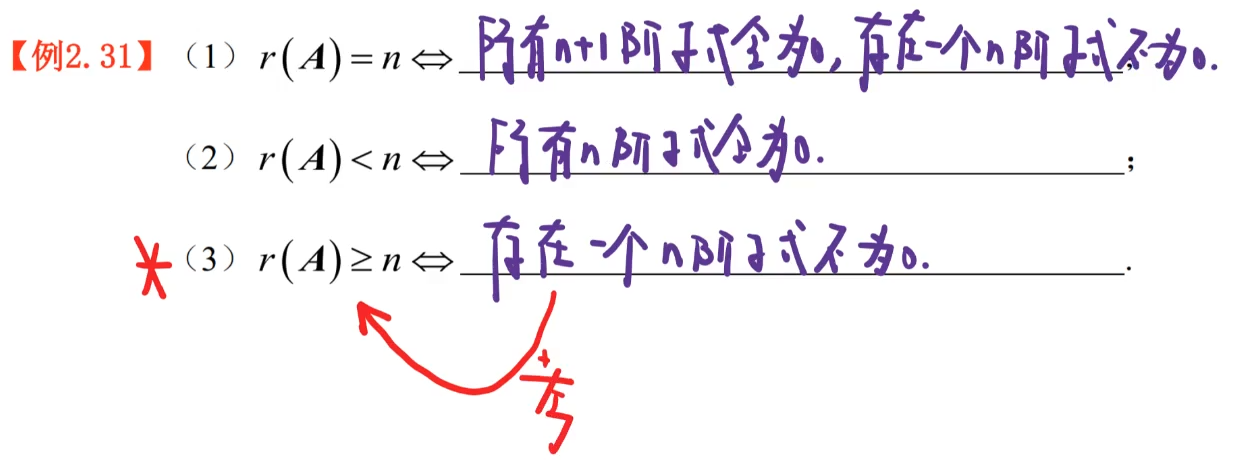 【例2.31】（1）r(A)=n⇔所有n+1阶子式全为0,存在一个n阶子式不为0.;
（2）r(A)<n⇔所有n阶子式全为0.;
*（3）r(A)≥n⇔存在一个n阶子式不为0..